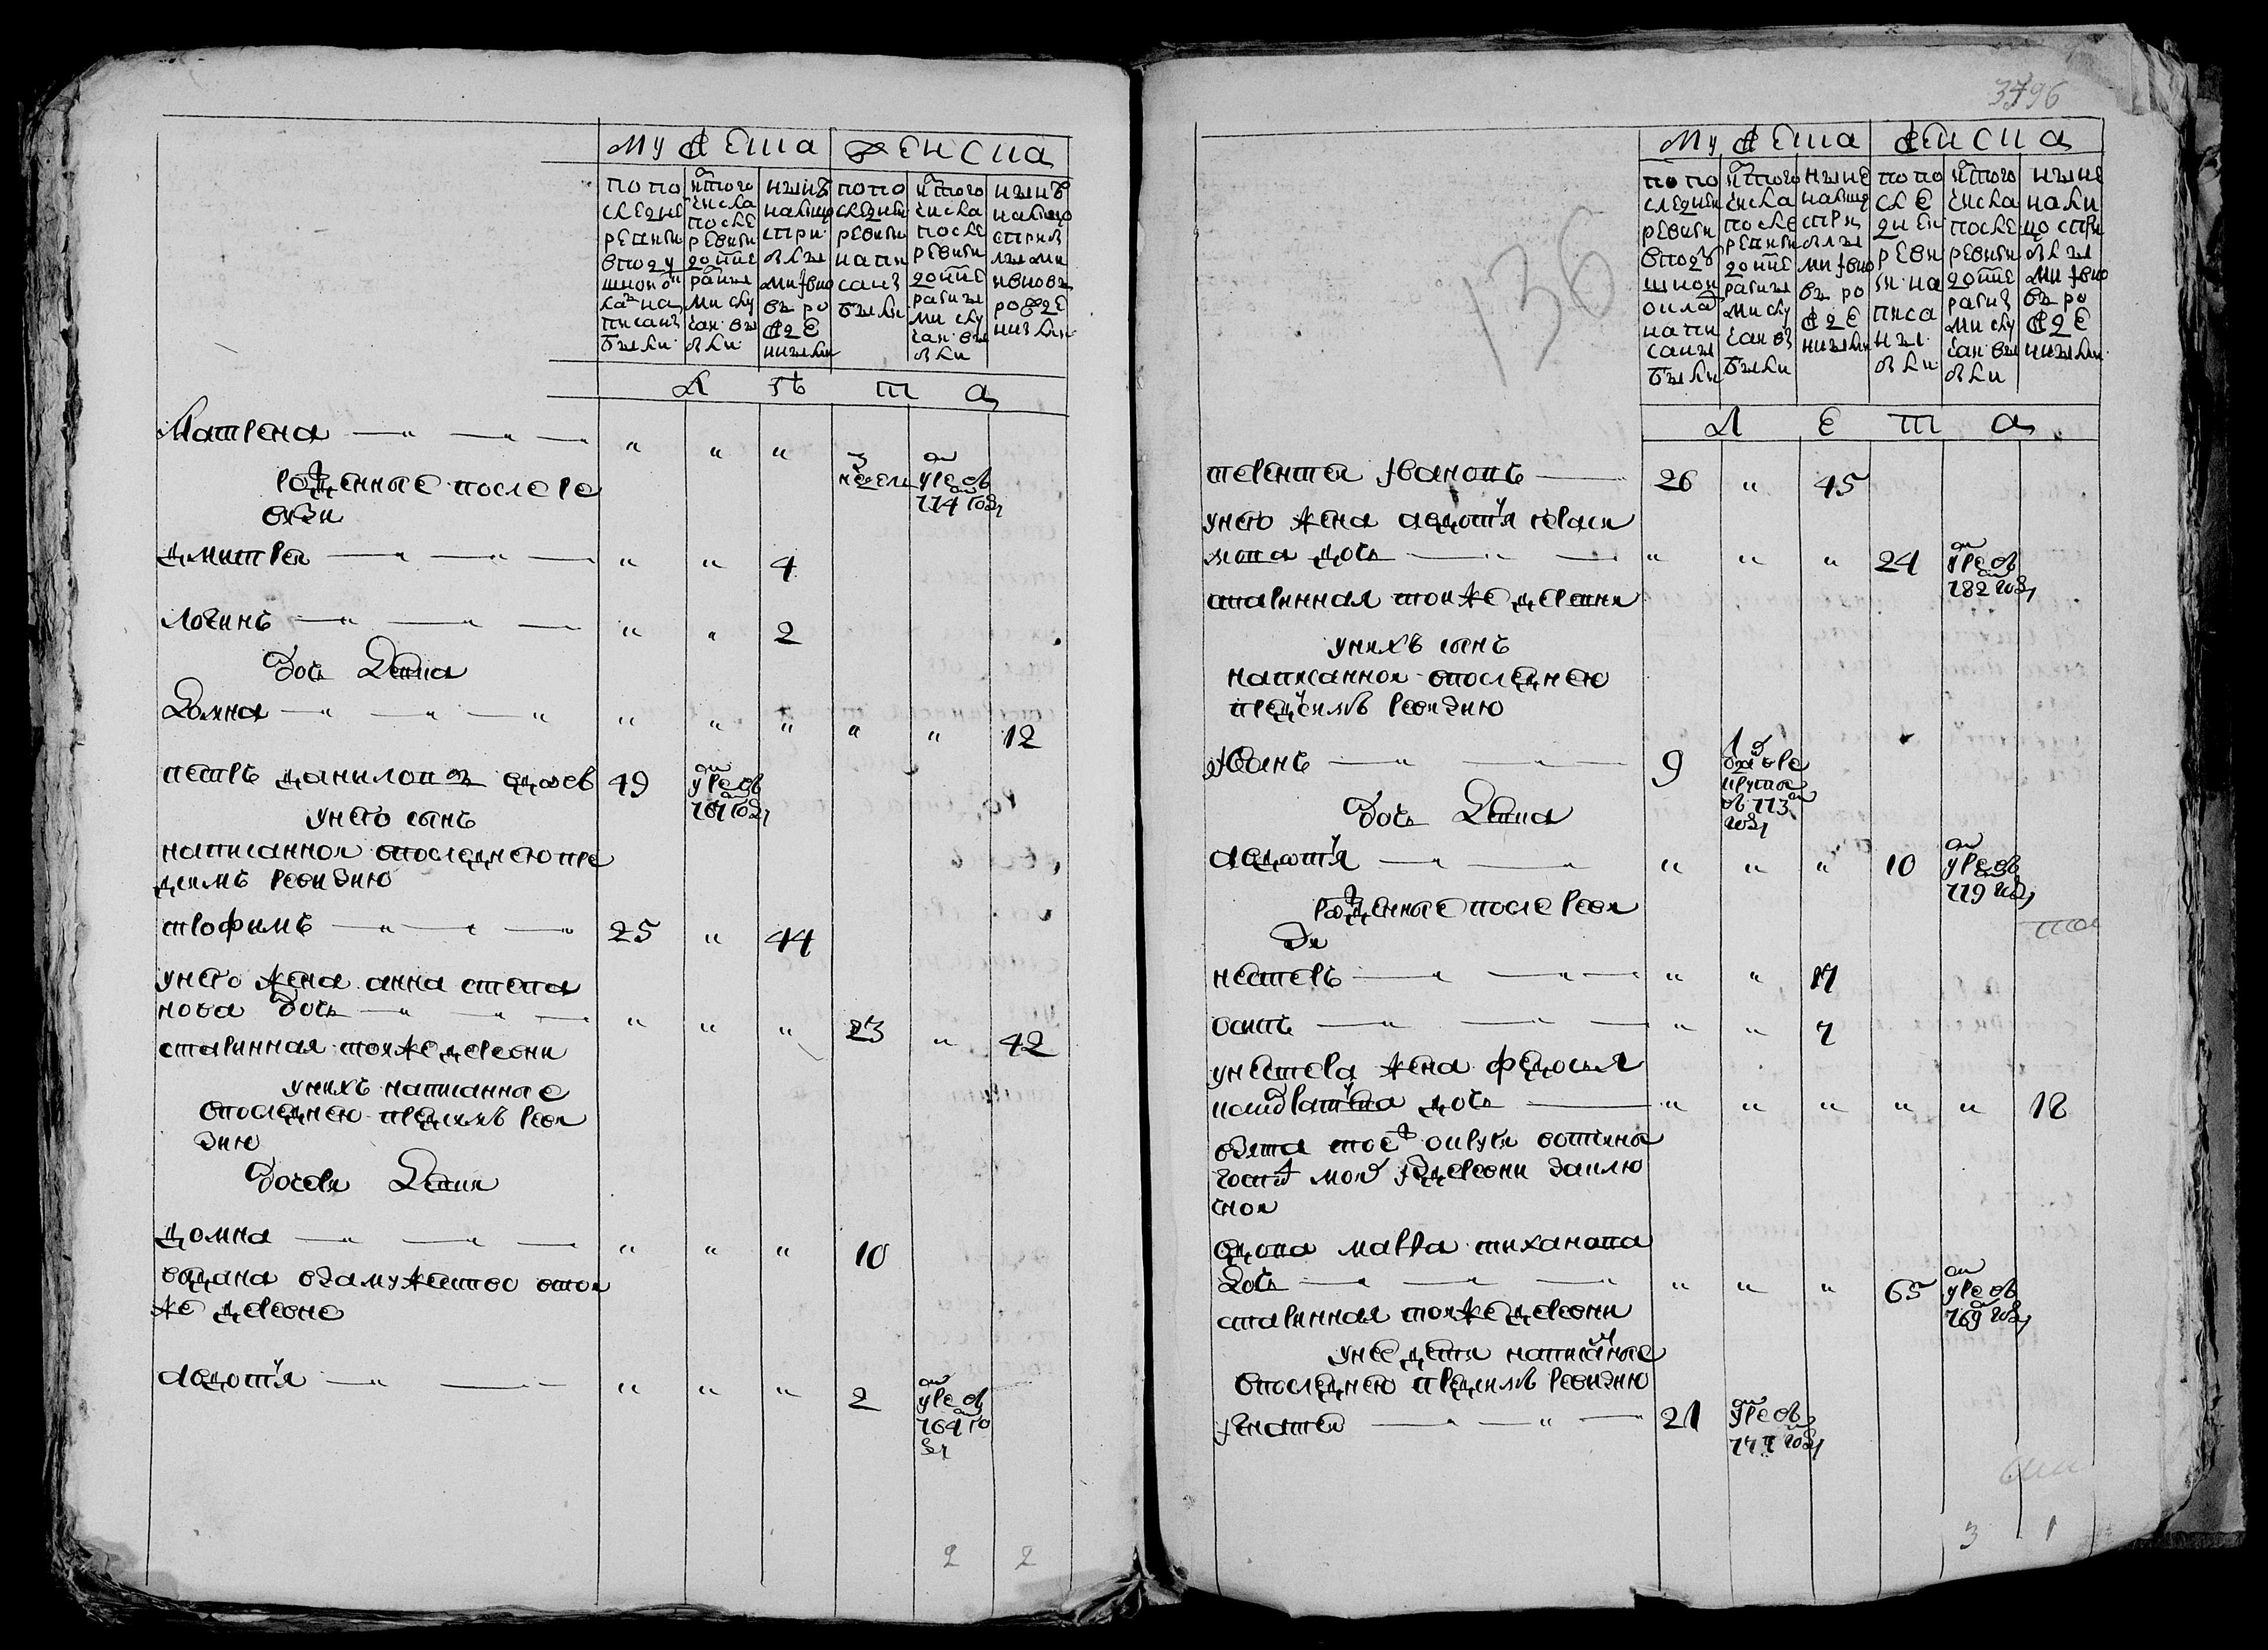 мужеска женска
попо
следне
ревизи
вподу
шном ок
ладе на
писаны
были
исъ того
числа
после
ревизи
до ныне
разны
ми слу
чаи вы
были
ныне
налицо
спри
былы
ми ивно
въ ро
жде
ными
попо
следней
ревизи
напи
саны
были
исъ того
числа
после
ревизи
до ныне
разны
ми слу
чаи вы
были
ныне
налицо
сприб
лыми
ивновь
рожде
ными
л ѣ т а
Матрена " " " 3 недели умре въ 774 году
рожденные после ре
визи
дмитрей " " 4
логинъ " " 2
дочь девка
домна " " " " " 12
петръ даниловъ вдовъ 49 умре въ 767 году
унего сынъ
написанной впоследнею пре
димъ ревизию
трофимъ 25 " 44
унего жена анна степа
нова дочь " " " 23 " 42
старинная тояже деревни
унихъ написанные
впоследнею предимъ реви
зию
дочери девки
домна " " " 10
выдана взамужество втои
же деревне
авдотья " " " 2 умре въ 764 го
ду
3796
136
мужеска женска
попо
следней
ревизи
вподу
шном
окла
напи
саны
были
исъ того
числа
после
ревизи
до ныне
разны
ми слу
чаи вы
были
ныне
налицо
спри
былы
ми ивно
въ ро
жде
ными
попо
сле
дней
реви
зи на
писа
ны
были
исъ того
числа
после
ревизи
до ныне
разны
ми слу
чаи вы
были
ныне
нали
цо спри
былы
ми ивно
въ ро
жде
ными
л е т а
терентей ивановъ 26 " 45
унего жена авдотья гераси
мова дочь " " " 24 умре въ 782 году
старинная тоиже деревни
унихъ сынъ
написанной впоследнею
предъсимъ ревизию
иванъ 9 взятъ в рекруты въ 773 году
дочь девка
авдотья " " " 10 умре въ 779 году
рожденные после реви
зи
нестеръ " " 17
осипъ " " 7
унестера жена федосья
кондратьева дочь " " " " " 18
взята тоеж округи вотчины
госпж моей издеревни заклю
чной
вдова мавра тиханова
дочь " " " 65 умре въ 769 году
старинная тояже деревни
унее дети написанные
впоследнею предимъ ревизию
игнатей 21 умре въ 777 году
2 2
3 1